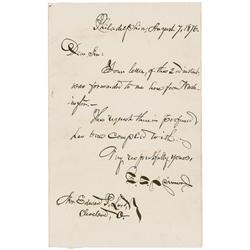 Philadelphia, August 7, 1876.
Dear Sir:
Your letter of the 2d instant
was forwarded to me here from Wash-
ington.
The request therein contained
has been complied with.
Very respectfully yours,
Mr. Edward P.
Cleveland, O.